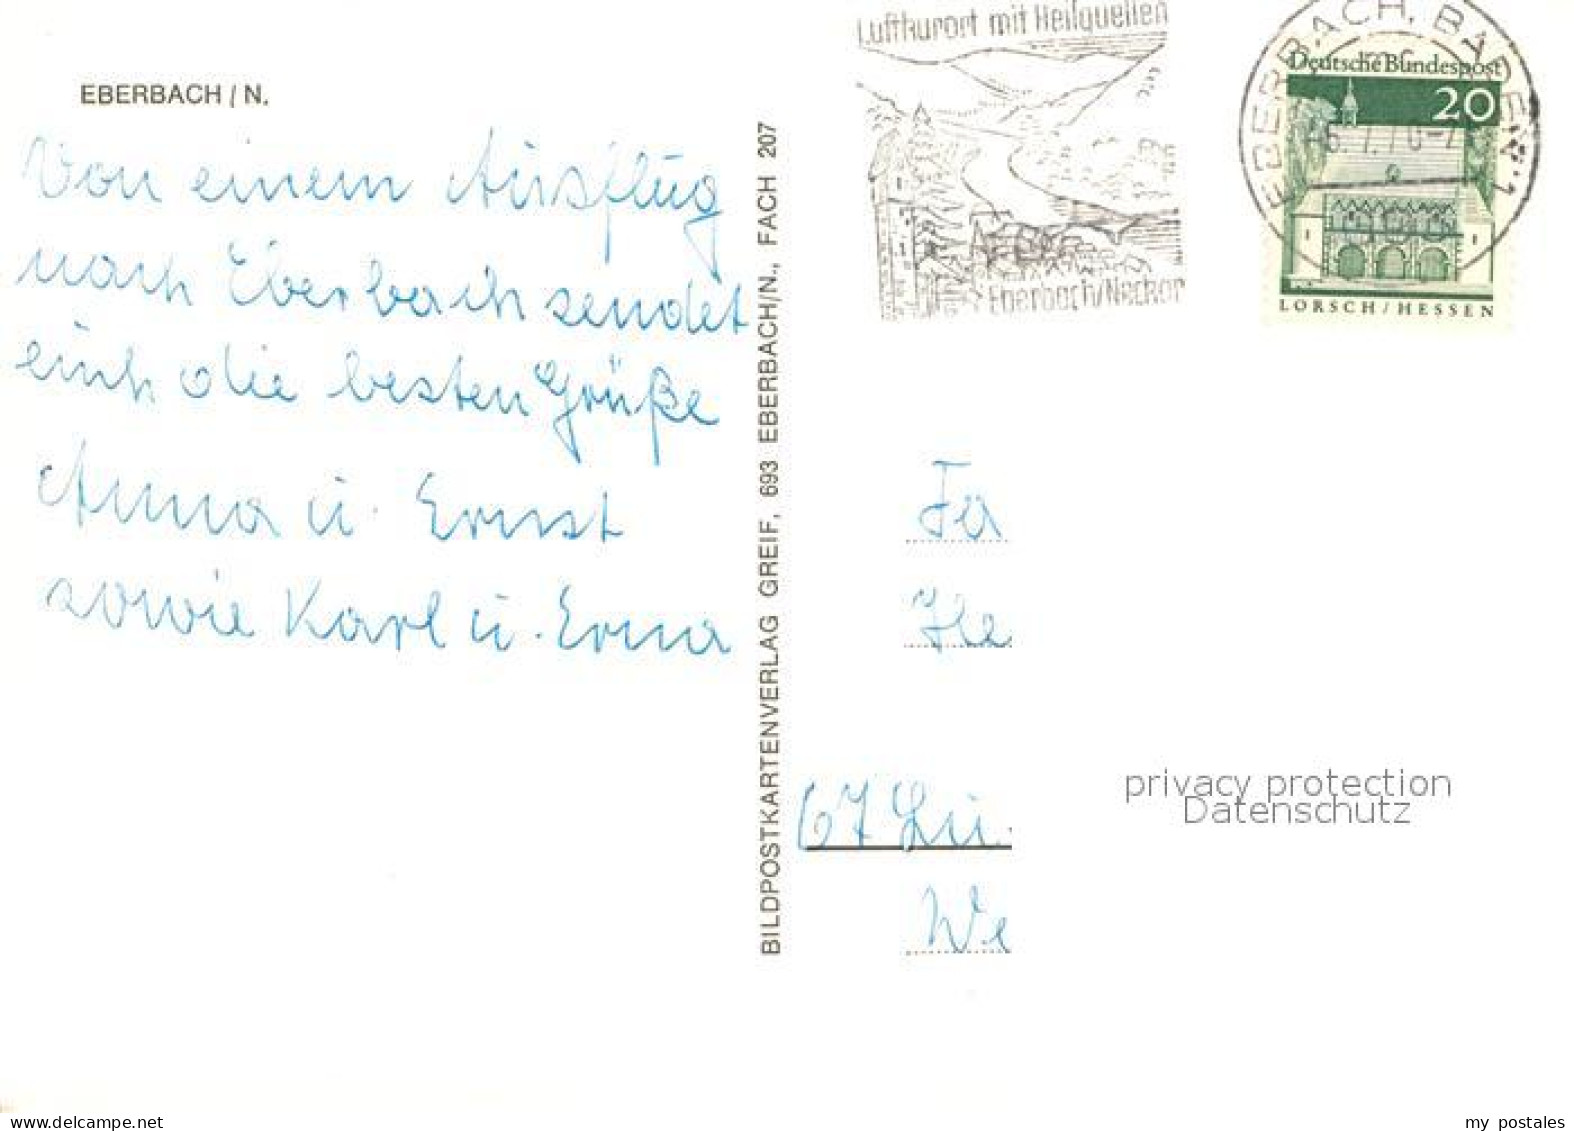 EBERBACH / N.
Von einem Ausflug
nach Eberbach sendet
euch die besten Grüße
Anna u. Ernst
sowie Karl u. Erna
BILDPOSTKARTENVERLAG GREIF, 693 EBERBACH/N., FACH 207
Luftkurort mit Heilquellen
Eberbach/Neckar
EBERBACH, BADEN 1
Deutsche Bundespost
20
LORSCH / HESSEN
Fa
He
67 Lu.
We
privacy protection
Datenschutz
delcampe.net
my postales